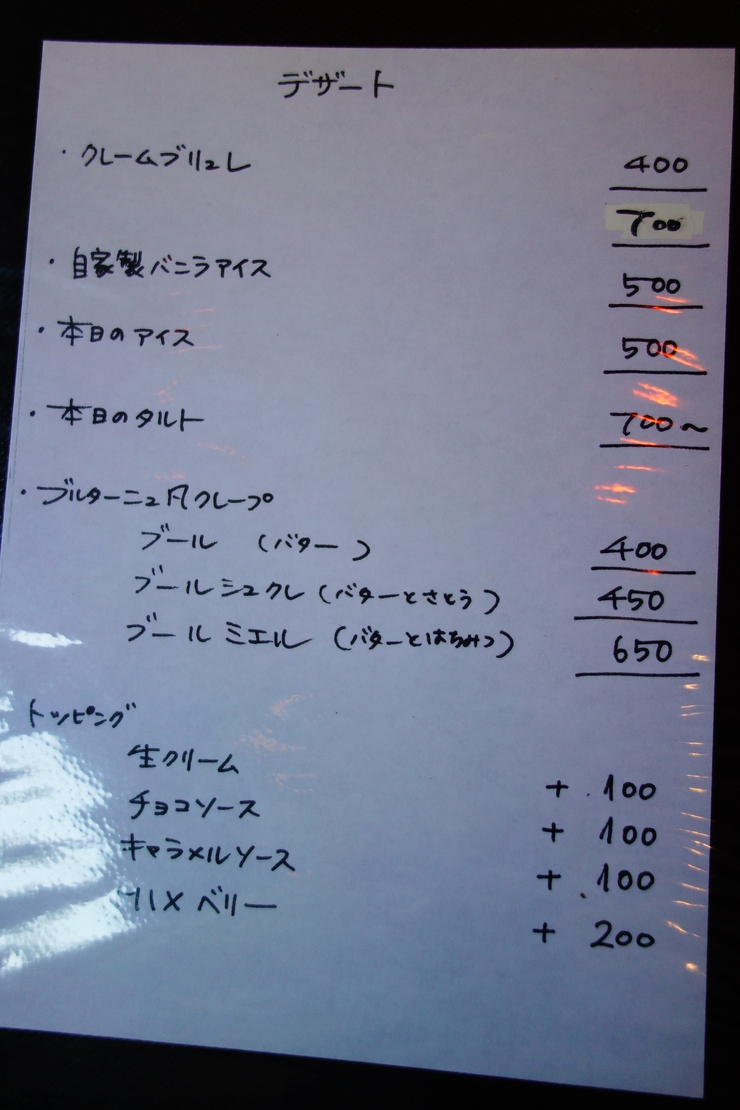 デザート
・クレームブリュレ 400
700
・自家製バニラアイス 500
・本日のアイス 500
・本日のタルト 700〜
・ブルターニュ風クレープ
ブール (バター) 400
ブールシュクレ (バターとさとう) 450
ブールミエル (バターとはちみつ) 650
トッピング
生クリーム + 100
チョコソース + 100
キャラメルソース + 100
ベリー + 200